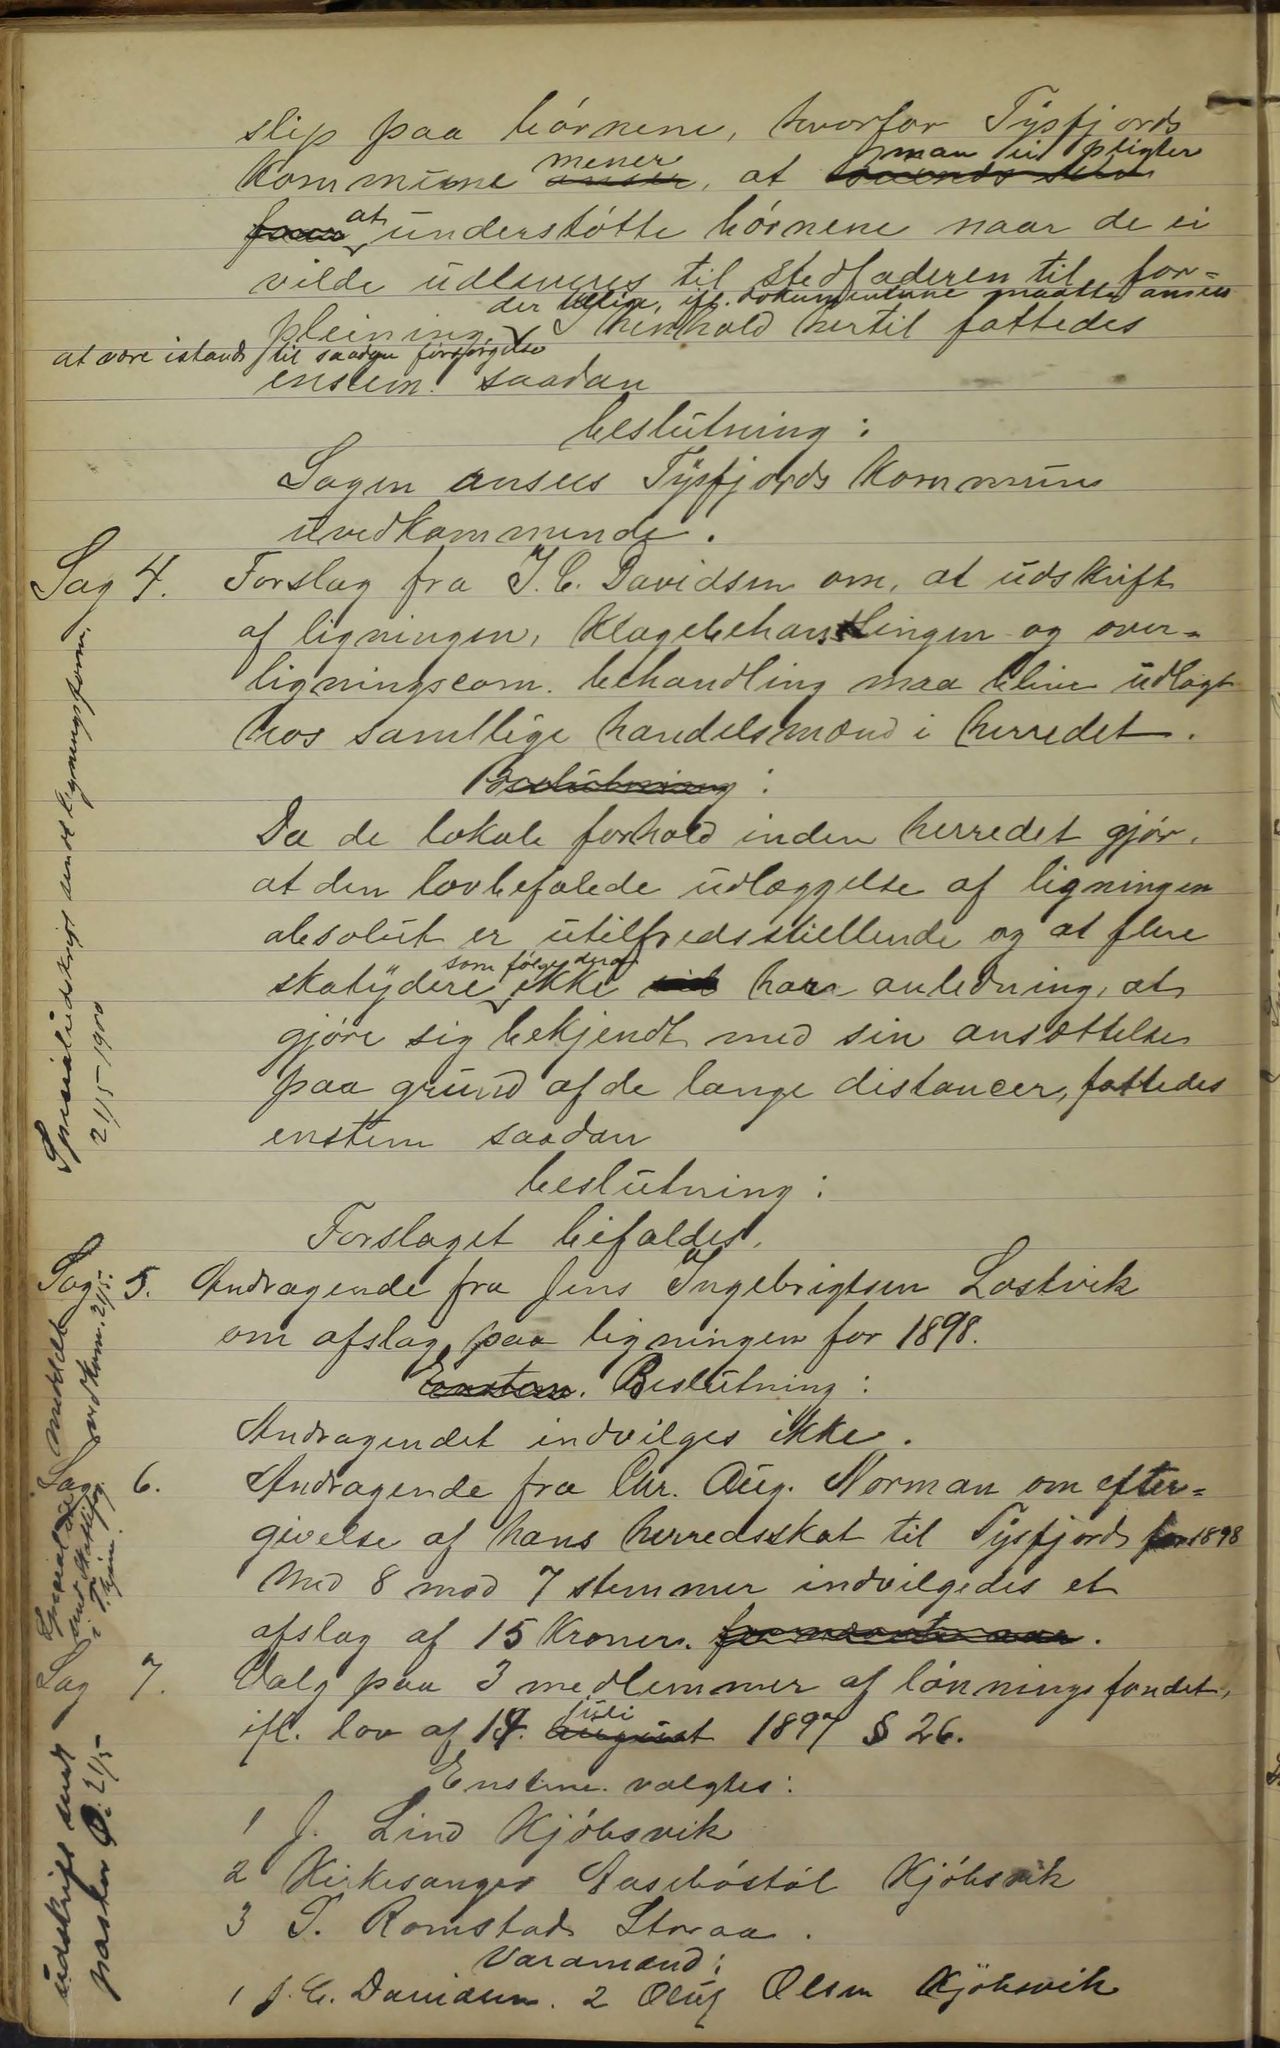 slip paa börnene, hvorfor Tysfjords
man ei pligter
mener
Kommune anser, at
at
understötte börnene naar de ei
vilde udleveres til stedfaderen til for-
der ifl. dokumenterne maatte ansees
pleining. I henhold hertil fattedes
at være istand til saadan forsørgelse
enstem. saadan
beslutning:
Sagen ansees Tysfjords Kommune
uvedkommende.
Sag 4. Forslag fra J. C. Davidsen om, at udskrift
af ligningen, klagebehandlingen og over-
ligningscom. behandling maa blive udlagt
hos samtlige handelsmænd i herredet.
Beslutning:
Da de lokale forhold inden herredet gjør,
at den lovbefalede udlæggelse af ligningen
absolut er utilfredsstillende og at flere
som følge deraf
skatydere ikke har anledning, at
gjöre sig bekjendt med sin ansættelse
paa grund af de lange distancer, fattedes
enstem saadan
beslutning:
Forslaget bifaldes.
Specialudskrift sendt ligningsform.
21/5-1900
Sag 5. Andragende fra Jens Ingebrigtsen Lostvik
om afslag paa ligningen for 1898.
Enstem. Beslutning:
Andragendet indvilges ikke.
meddelt vedkom. 21/5.
Sag 6. Andragende fra Chr. Aug. Norman om efter-
givelse af hans herredsskat til Tysfjord for 1898
Med 8 mod 7 stemmer indvilgedes et
afslag af 15 Kroner.
Sag 7. Valg paa 3 medlemmer af lönningsfondet,
juli
ifl. lov af 14. august 1897 § 26.
Enstem. valgtes:
1 J. Lind Kjöbsvik
2 Kirkesanger Aaseböstöl Kjöbsvik
3 T. Romstad Storaa.
Varamænd:
1 J. C. Davidsen. 2 Oluf Olsen Kjöbsvik
udskrift sendt
presten 21/5